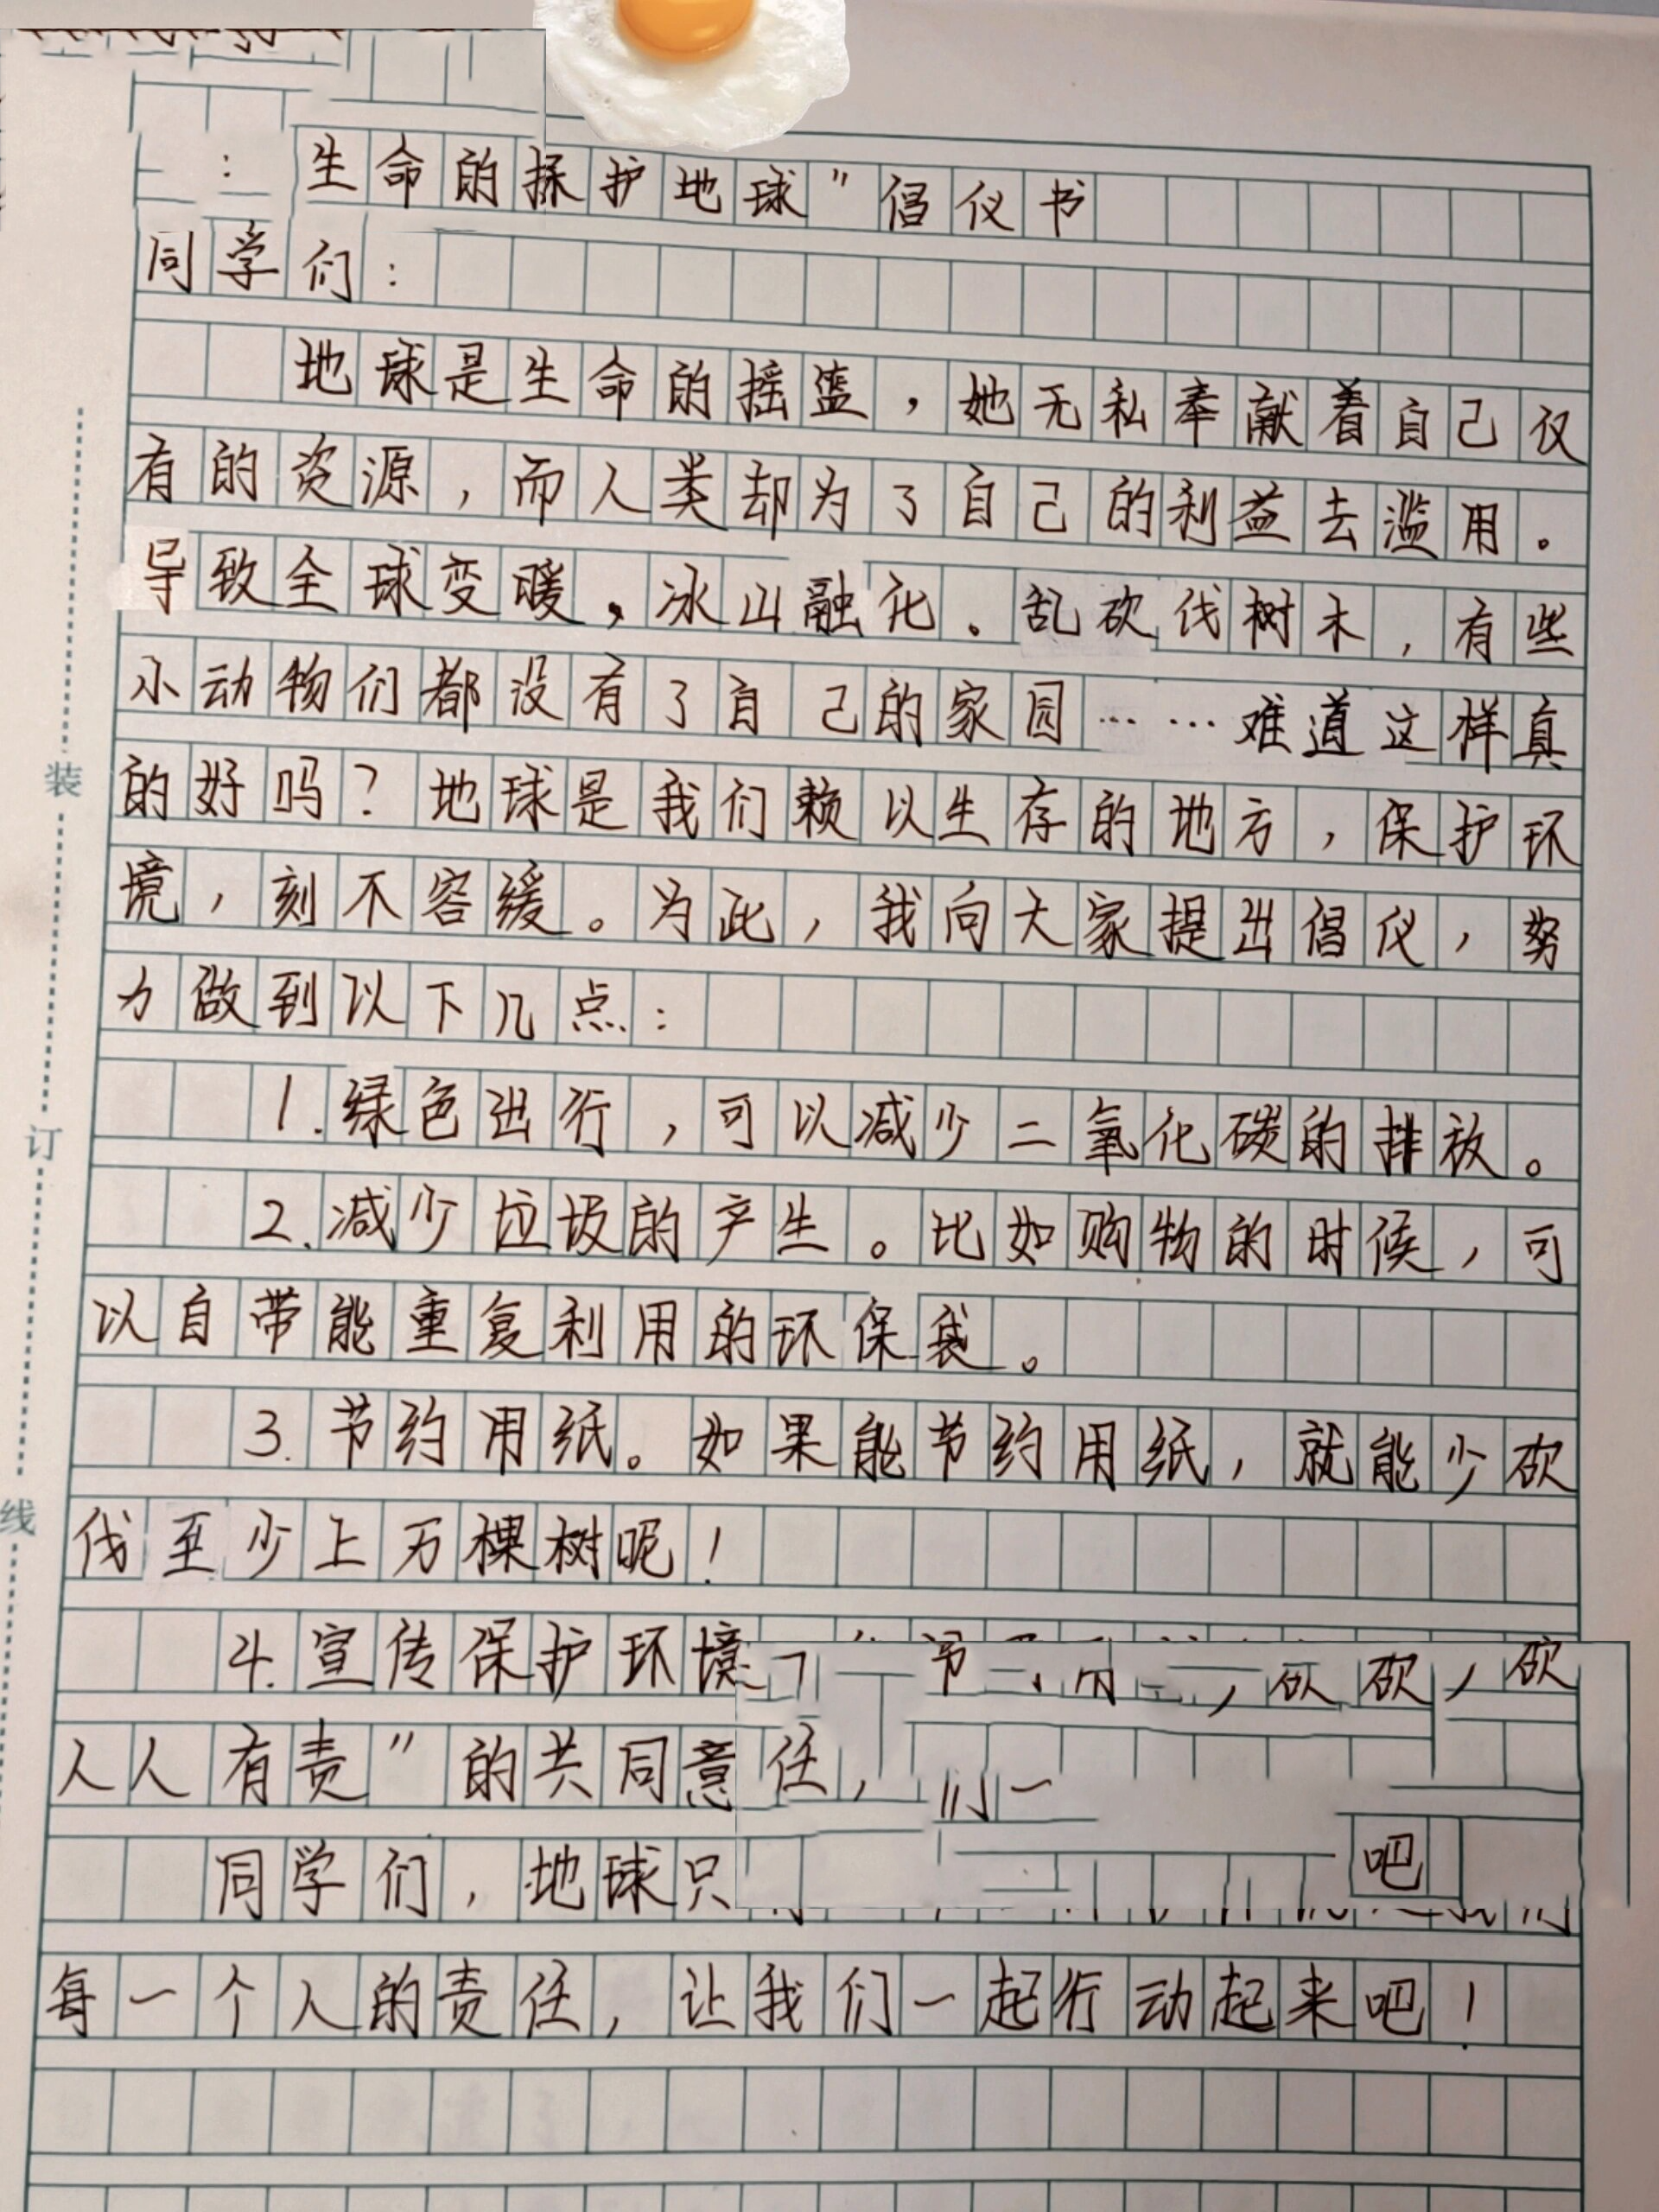 ：生命的摇护地球”倡仪书
同学们：
地球是生命的摇篮，她无私奉献着自己仅
有的资源，而人类却为了自己的利益去滥用。
导致全球变暖，冰山融化。乱砍伐树木，有些
小动物们都没有了自己的家园……难道这样真
的好吗？地球是我们赖以生存的地方，保护环
境，刻不容缓。为此，我向大家提出倡仪，努
力做到以下几点：
1.绿色出行，可以减少二氧化碳的排放。
2.减少垃圾的产生。比如购物的时候，可
以自带能重复利用的环保袋。
3.节约用纸。如果能节约用纸，就能少砍
伐至少上万棵树呢！
4.宣传保护环境
人人有责”的共同意任，们一
同学们，地球只吧
每一个人的责任，让我们一起行动起来吧！
装
订
线